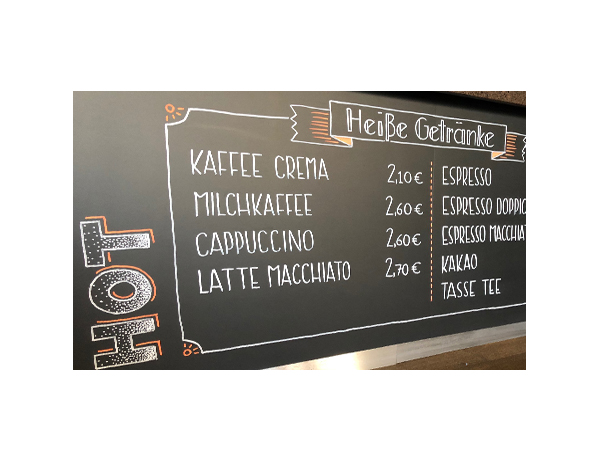 HOT
Heiße Getränke
KAFFEE CREMA 2,10 €
MILCHKAFFEE 2,60 €
CAPPUCCINO 2,60 €
LATTE MACCHIATO 2,70 €
ESPRESSO
ESPRESSO DOPPIO
ESPRESSO MACCHIAT
KAKAO
TASSE TEE